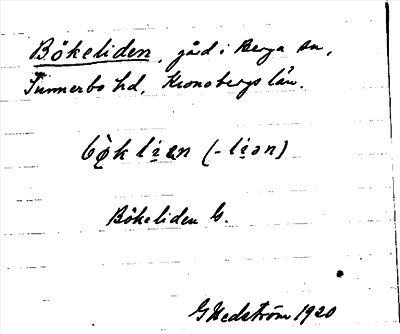 Bökeliden, gård i Berga sn,
Sunnerbo hd, Kronobergs län.
bø̀k li̱ɐn (-li̱ən)
Bökeliden G.
G Hedström 1920